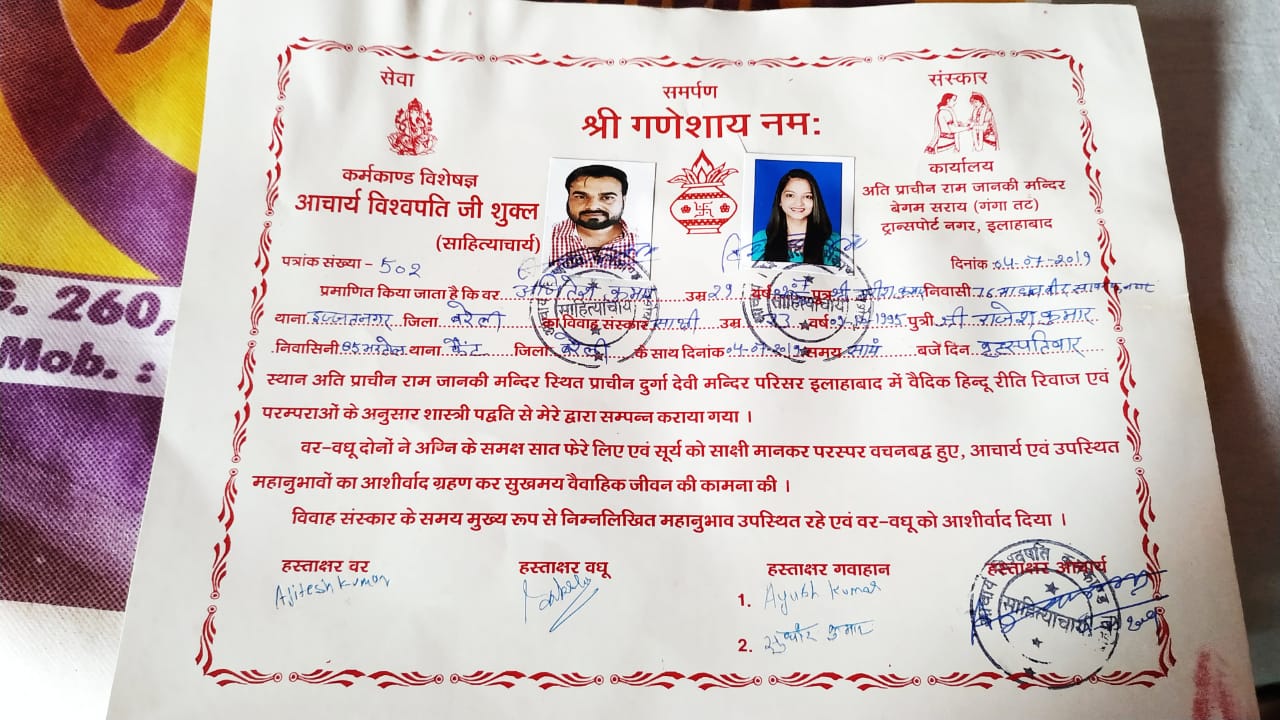 सेवा
समर्पण
संस्कार
श्री गणेशाय नमः
कर्मकाण्ड विशेषज्ञ
आचार्य विश्वपति जी शुक्ल
(साहित्याचार्य)
कार्यालय
अति प्राचीन राम जानकी मन्दिर
बेगम सराय (गंगा तट)
ट्रान्सपोर्ट नगर, इलाहाबाद
पत्रांक संख्या - 502
दिनांक 04-07-2019
प्रमाणित किया जाता है कि वर कुमार उम्र 29 वर्ष पुत्र श्री निवासी 76
थाना इज्जतनगर जिला बरेली का विवाह संस्कार साक्षी उम्र वर्ष 1995 पुत्री श्री राजेश कुमार
निवासिनी थाना कैंट जिला बरेली के साथ दिनांक 04-07-2019 समय सायं बजें दिन वृहस्पतिवार
स्थान अति प्राचीन राम जानकी मन्दिर स्थित प्राचीन दुर्गा देवी मन्दिर परिसर इलाहाबाद में वैदिक हिन्दू रीति रिवाज एवं
परम्पराओं के अनुसार शास्त्री पद्वति से मेरे द्वारा सम्पन्न कराया गया ।
वर-वधू दोनों ने अग्नि के समक्ष सात फेरे लिए एवं सूर्य को साक्षी मानकर परस्पर वचनबद्व हुए, आचार्य एवं उपस्थित
महानुभावों का आशीर्वाद ग्रहण कर सुखमय वैवाहिक जीवन की कामना की ।
विवाह संस्कार के समय मुख्य रूप से निम्नलिखित महानुभाव उपस्थित रहे एवं वर-वधू को आशीर्वाद दिया ।
हस्ताक्षर वर
हस्ताक्षर वधू
हस्ताक्षर गवाहान
हस्ताक्षर आचार्य
Ajitesh Kumar
1. Ayush Kumar
2. सुधीर कुमार
साहित्याचार्य
G. 260,
Mob. :